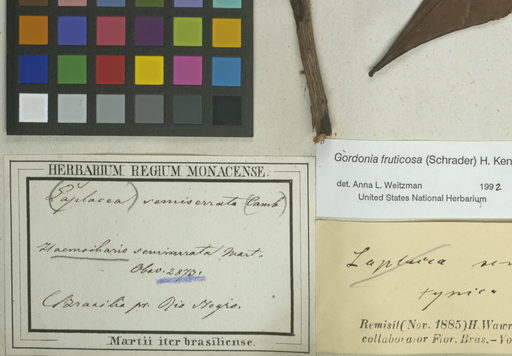 HERBARIUM REGIUM MONACENSE.
(Laplacea) semiserrata (Camb)
Haemocharis semiserrata Mart.
Obsv. 2873.
Brasilia pr. Rio Negro.
Martii iter brasiliense.
Gordonia fruticosa (Schrader) H. Ken
det. Anna L. Weitzman 1992
United States National Herbarium
Laplacea sem
typica
Remisit (Nov. 1885) H. Wawr
collaborator Flor. Bras. - Vo